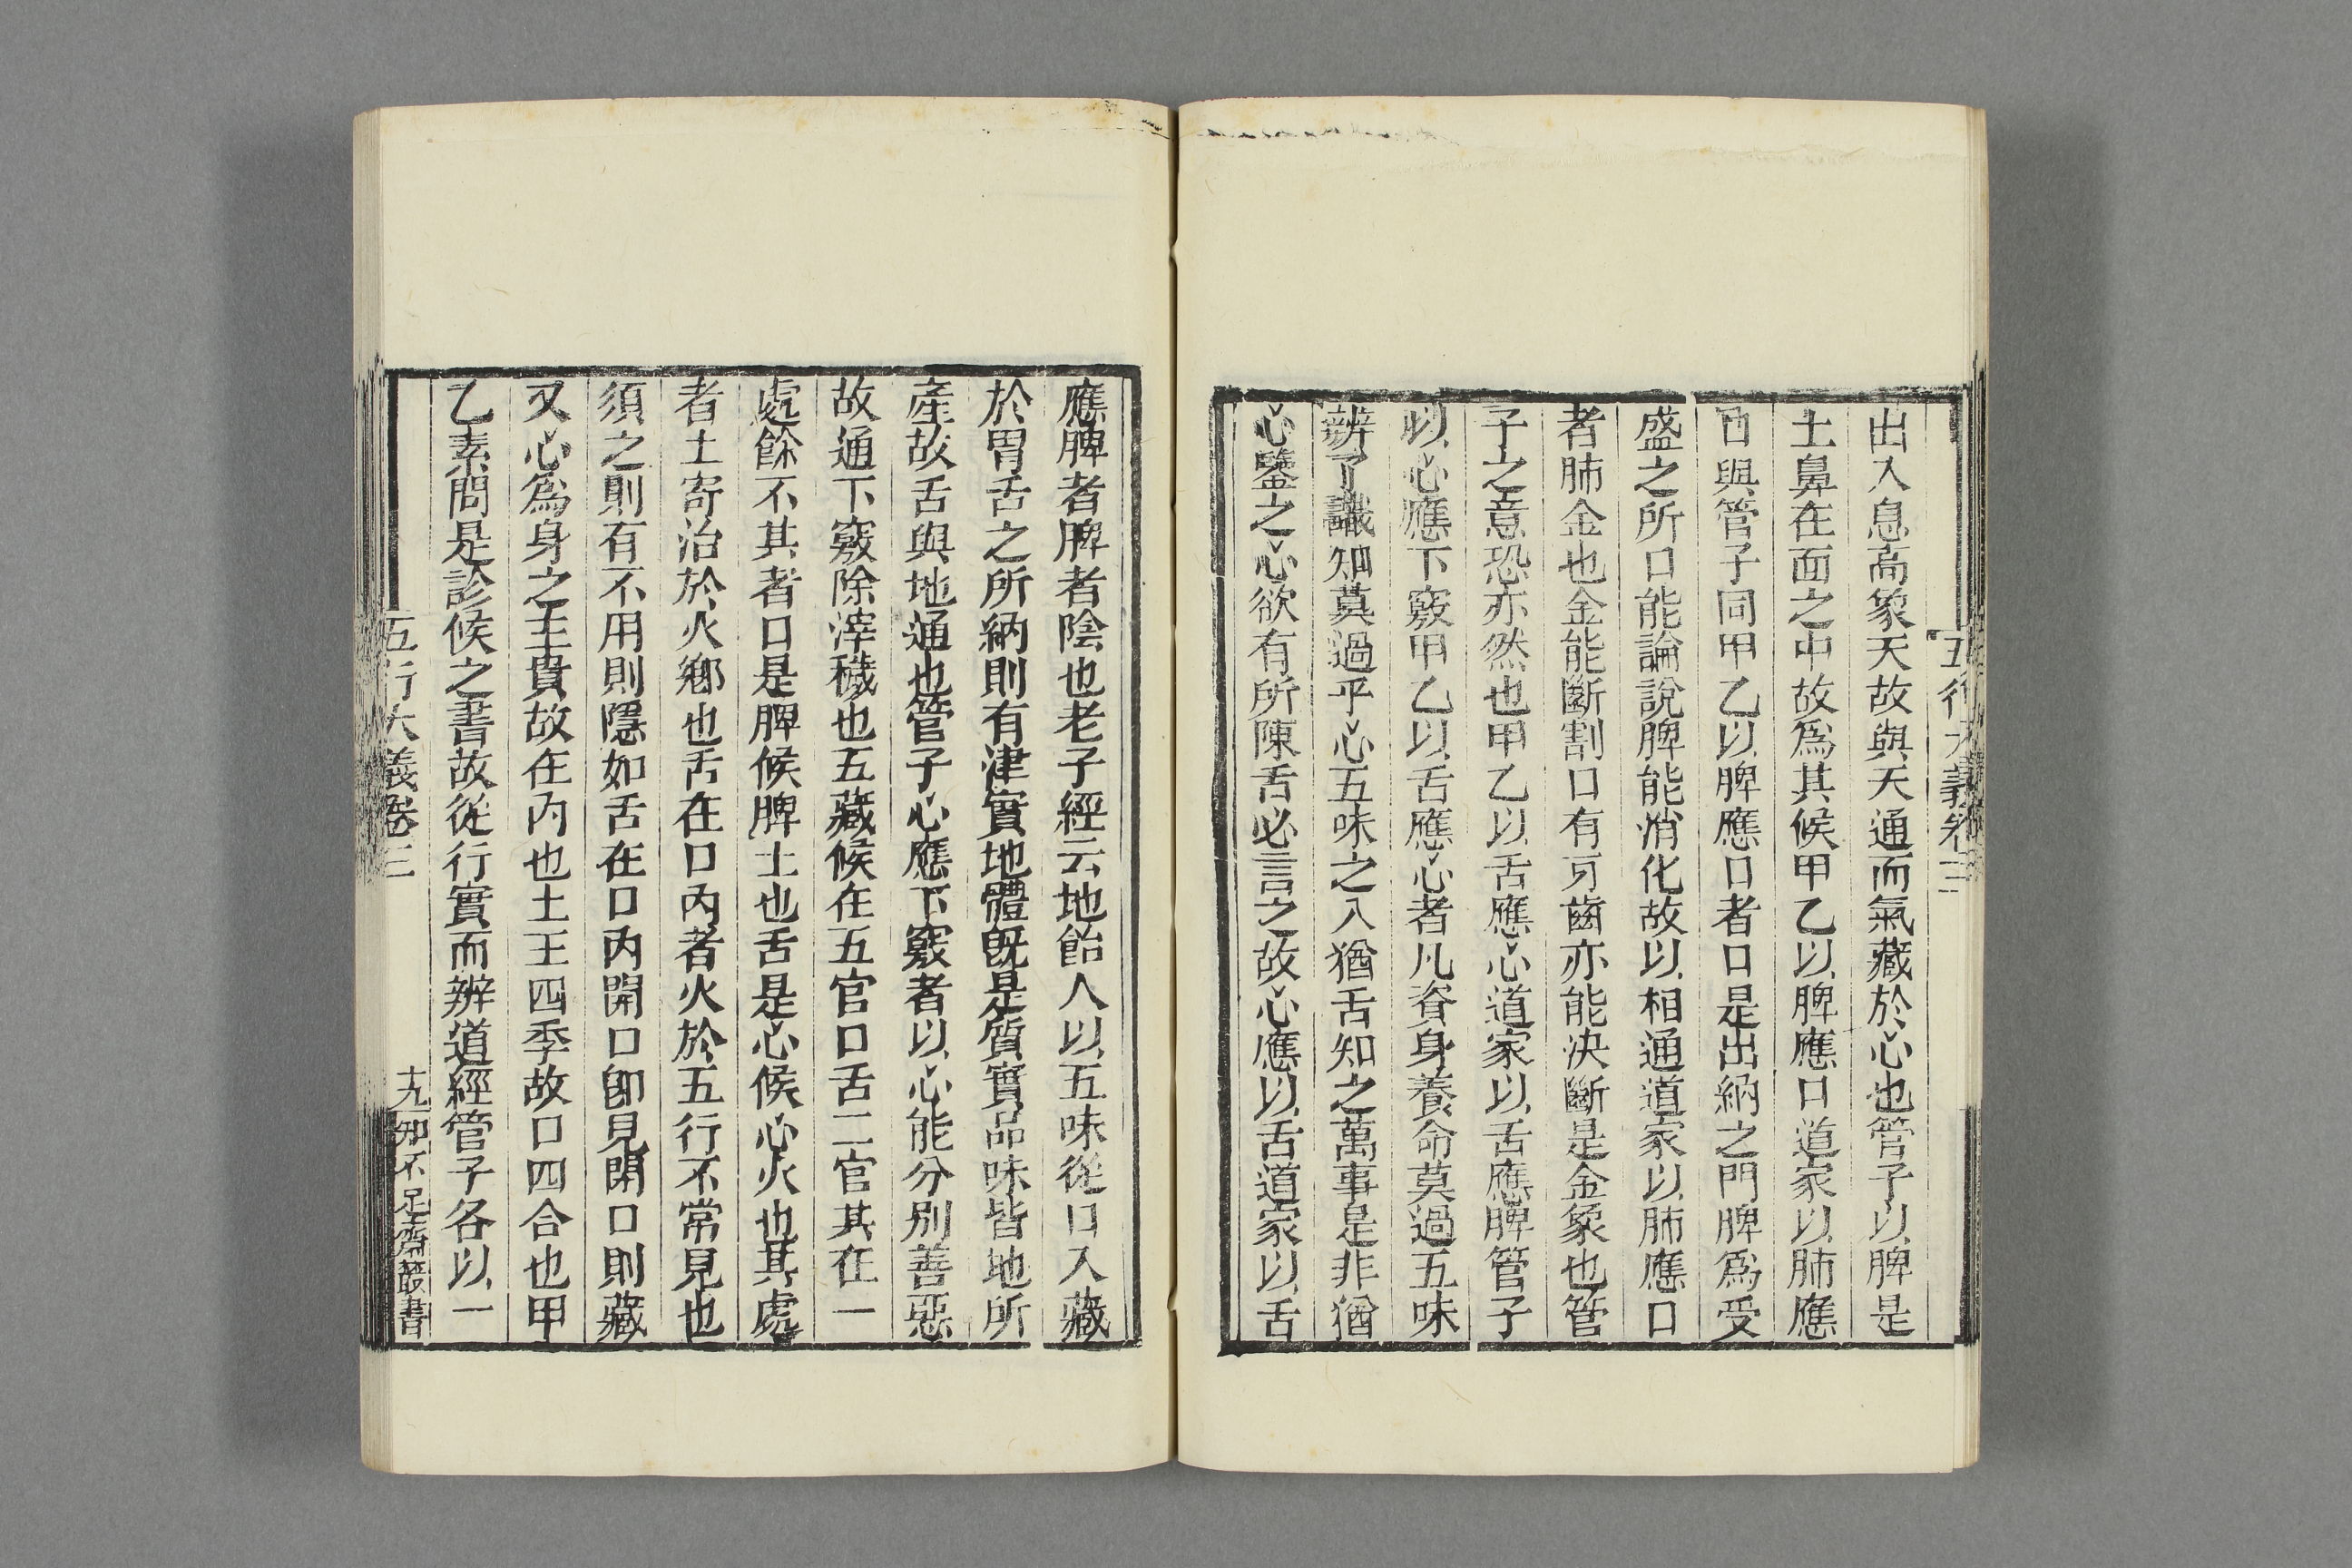 五行大義卷三
出入息高象天故與天通而氣藏於心也管子以脾是
土鼻在面之中故爲其候甲乙以脾應口道家以肺應
口與管子同甲乙以脾應口者口是出納之門脾爲受
盛之所口能論說脾能消化故以相通道家以肺應口
者肺金也金能斷割口有牙齒亦能決斷是金象也管
子之意恐亦然也甲乙以舌應心道家以舌應脾管子
以心應下竅甲乙以舌應心者凡資身養命莫過五味
辨了識知莫過乎心五味之入猶舌知之萬事是非猶
心鑒之心欲有所陳舌必言之故心應以舌道家以舌
應脾者脾者陰也老子經云地飴人以五味從口入藏
於胃舌之所納則有津實地體既是質實品味皆地所
產故舌與地通也管子心應下竅者以心能分別善惡
故通下竅除滓穢也五藏候在五官口舌二官其在一
處餘不其者口是脾候脾土也舌是心候心火也其處
者土寄治於火鄉也舌在口內者火於五行不常見也
須之則有不用則隱如舌在口內開口卽見閉口則藏
又心爲身之王貴故在內也土王四季故口四合也甲
乙素問是診候之書故從行實而辨道經管子各以一
五行大義卷三
十九
知不足齋叢書